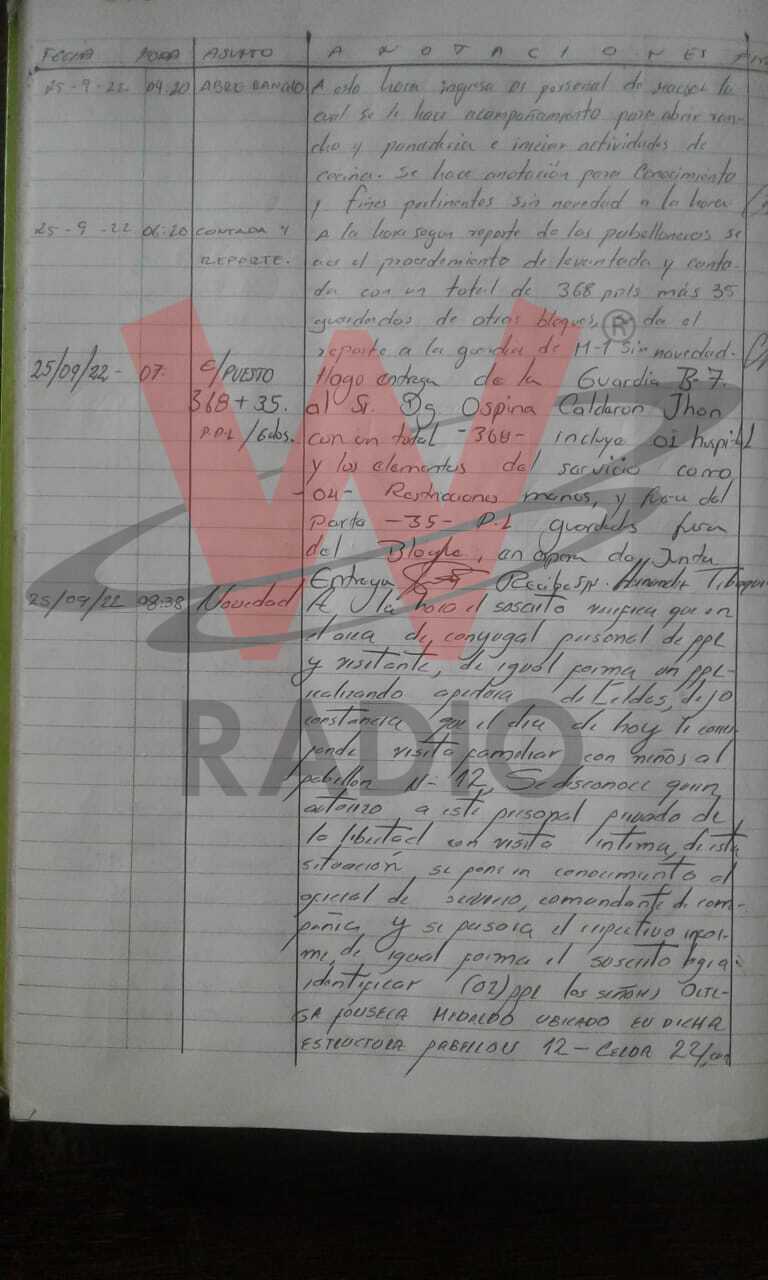 FECHA HORA ASUNTO ANOTACIONES
25-9-22 04:20 ABRE RANCHO A esta hora ingresa el personal de rancho lo
cual se le hace acompañamiento para abrir ran-
cho y panaderia e iniciar actividades de
cocina. Se hace anotación para conocimiento
y fines pertinentes sin novedad a la hora
25-9-22 06:20 CONTADA Y A la hora segun reporte de los pabelloneros se
REPORTE. el procedimiento de levantada y conta-
da con un total de 368 ppls más 35
guardados de otros bloques, se da el
reporte a la guardia de M-1 sin novedad.
25/09/22- 07: E/PUESTO Hago entrega de la Guardia B-7.
368+35. al Sr. Dg Ospina Calderon Jhon
P.P.L/Gdos. con un total -368- incluye 01 hospital
y los elementos del servicio como
-04- Restricciones manos, y fuera del
parte -35- P.L guardados fuera
del Bloque, en espera de Junta
Entrega Recibe SN.
25/09/22 08:38 Novedad A la hora el suscrito verifica que en
el area de conyugal personal de ppl
y visitante, de igual forma un ppl-
realizando apertura de Celdas, dejo
constancia que el dia de hoy le corres
ponde visita familiar con niños al
pabellon N- 12, Se desconoce quien
autorizo a este personal privado de
la libertad con visita intima, de esta
situación, se pone en conocimiento al
oficial de servicio, comandante de com-
pañia y se pasara el respectivo infor-
me, de igual forma el suscrito logra
identificar (02) ppl los señores ORTE-
GA FONSECA HIDALDO UBICADO EN DICHA
ESTRUCTURA PABELLON 12 - CELDA 22, con
W
®
RADIO